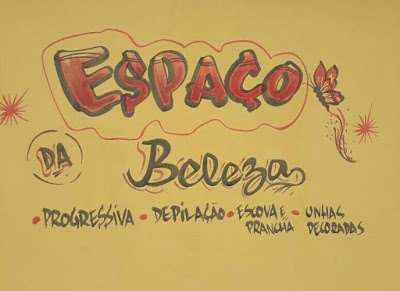 ESPAÇO
DA Beleza
• PROGRESSIVA • DEPILAÇÃO • ESCOVA E PRANCHA • UNHAS DECORADAS